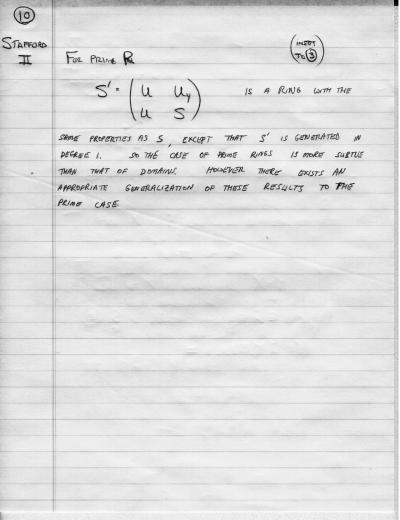 10
STAFFORD
II
FOR PRIME R
(INSERT TO 3)
S' = ( U Uy
U S ) IS A RING WITH THE
SAME PROPERTIES AS S, EXCEPT THAT S' IS GENERATED IN
DEGREE 1. SO THE CASE OF PRIME RINGS IS MORE SUBTLE
THAN THAT OF DOMAINS. HOWEVER THERE EXISTS AN
APPROPRIATE GENERALIZATION OF THESE RESULTS TO THE
PRIME CASE